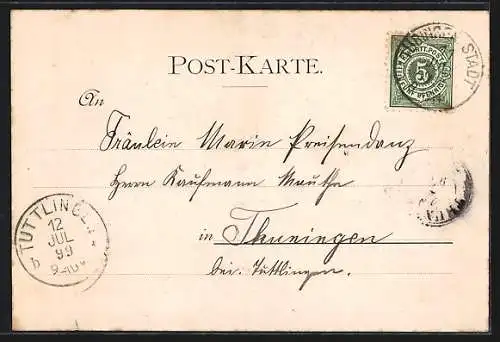 POST-KARTE.
5
STADT
An
Fräulein Marie Preisendanz
Herrn Kaufmann Mauthe
in Thuningen
bei Tuttlingen.
TUTTLINGEN
12
JUL
99
b